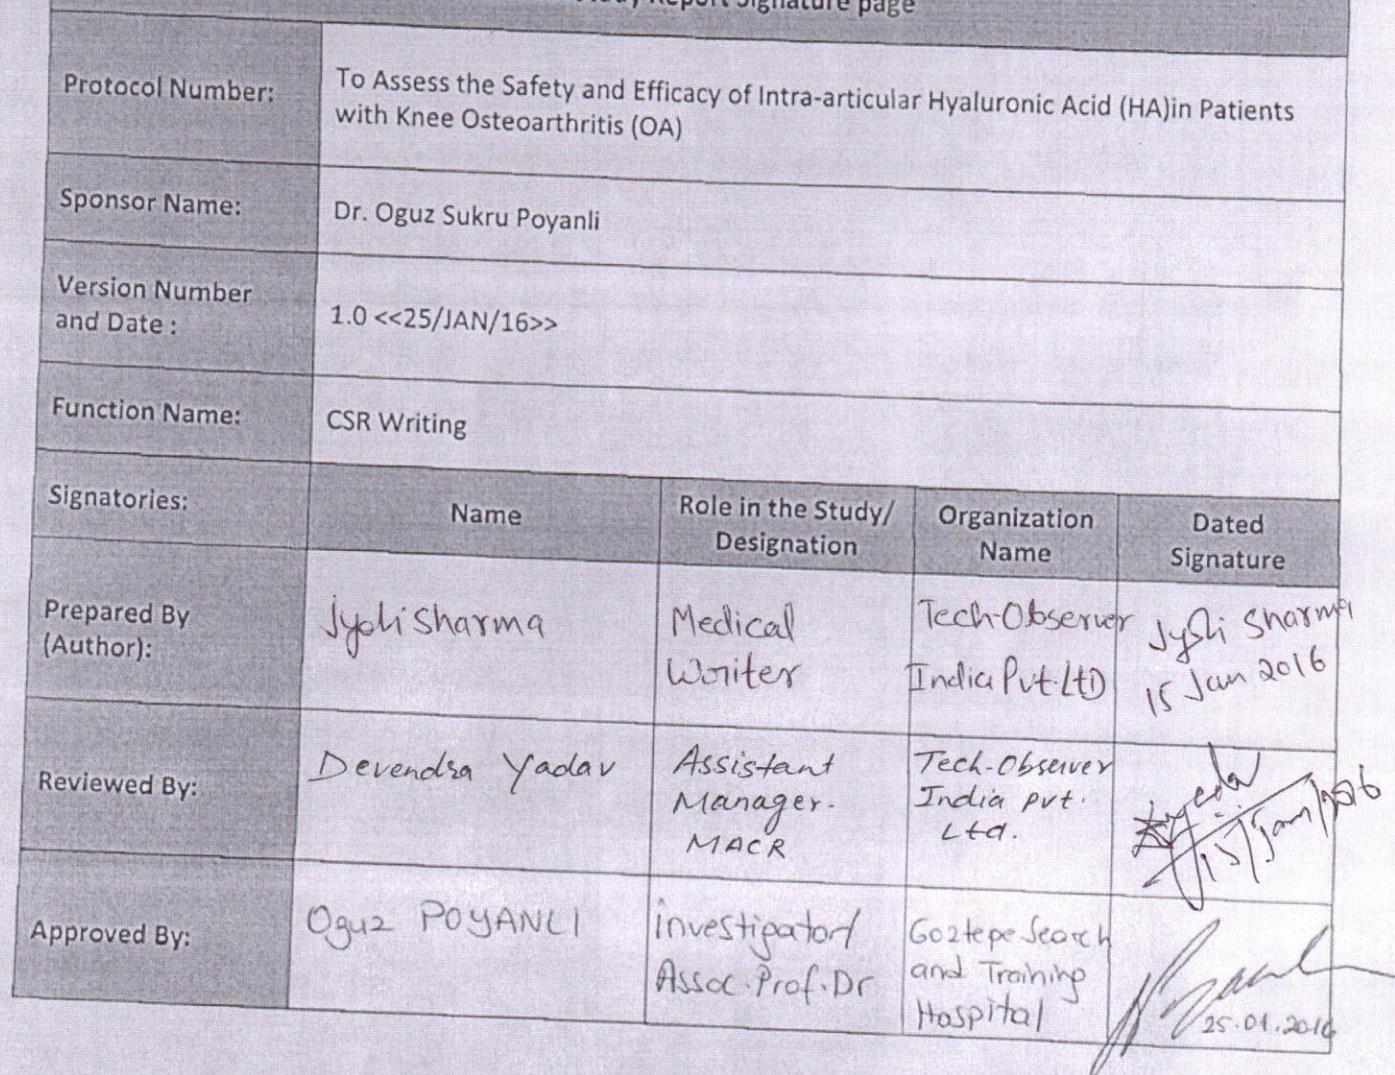 Study Report Signature page
Protocol Number:
To Assess the Safety and Efficacy of Intra-articular Hyaluronic Acid (HA)in Patients
with Knee Osteoarthritis (OA)
Sponsor Name:
Dr. Oguz Sukru Poyanli
Version Number
and Date :
1.0 <<25/JAN/16>>
Function Name:
CSR Writing
Signatories:
Name
Role in the Study/
Designation
Organization
Name
Dated
Signature
Prepared By
(Author):
Jyoti Sharma
Medical
Writer
Tech-Observer
India Pvt.Ltd
Jyoti Sharma
15 Jan 2016
Reviewed By:
Devendra Yadav
Assistant
Manager.
MACR
Tech-Observer
India pvt.
Ltd.
15/Jan/2016
Approved By:
Oguz POYANLI
investigator/
Assoc.Prof.Dr
Goztepe Search
and Training
Hospital
25.01.2016